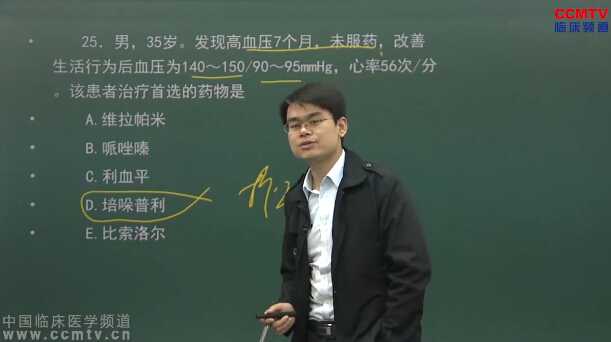 CCMTV
临床频道
25. 男，35岁。发现高血压7个月，未服药，改善
生活行为后血压为140～150/90～95mmHg，心率56次/分
。该患者治疗首选的药物是
A.维拉帕米
B.哌唑嗪
C.利血平
D.培哚普利
E.比索洛尔
中国临床医学频道
www.ccmtv.cn